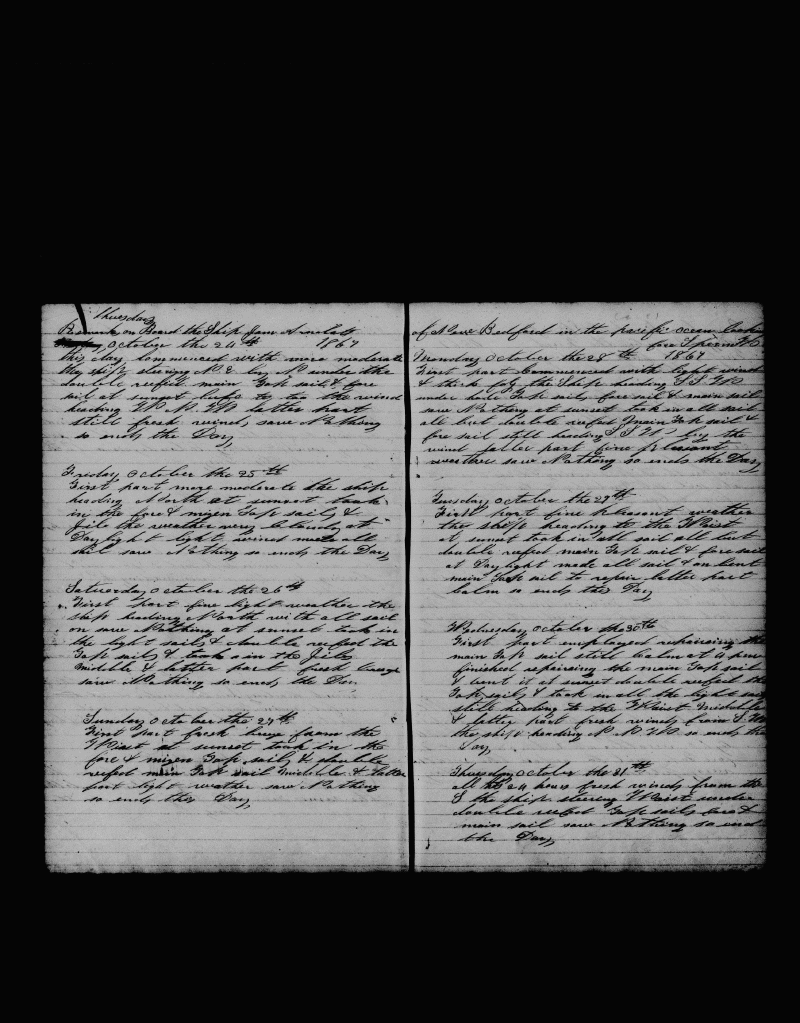 Thursday
Remarks on Board the Ship Jam Arnold
October the 24th 1867
this day commenced with more moderate
the ship stering N.E by N under the
double reefed main Topsail & fore
sail at sunset luft to the wind
heading W.N.W latter part
still fresh wind, saw Nothing
so ends the Day
Friday October the 25th
First part more moderate the ship
heading North at sunset took
in the fore & mizen Topsails &
Jib the weather very Cloudy at
Day light light winds made all
sail saw Nothing so ends the Day
Saturday October the 26th
First part fine light weather the
ship heading North with all sail
on saw Nothing at sunset took in
the light sails & double reefed the
Topsails & took in the Jib
middle & latter part fresh breeze
saw Nothing so ends the Day
Sunday October the 27th
First part fresh breeze from the
West at sunset took in the
fore & mizen Topsails & double
reefed main Topsail middle & latter
part light weather saw Nothing
so ends this Day
of New Bedford in the pacific ocean
for Sperm
Monday October the 28th 1867
First part Commenced with light winds
& thick fog the Ship heading S.S.W
under hole Topsails fore sail & main sail
saw Nothing at sunset took in all sail
all but double reefed main Topsail &
fore sail still heading S.S.W by the
wind latter part fine pleasant
weather saw Nothing so ends the Day
Tuesday October the 29th
First part fine pleasant weather
the ship heading to the West
at sunset took in all sail all but
double reefed main Topsail & fore sail
at Daylight made all sail & on bent
main Topsail to repair latter part
calm so ends this Day
Wednesday October the 30th
First part employed repairing the
main Topsail still calm at 2 pm
finished repairing the main Topsail
& bent it at sunset double reefed the
Topsails & took in all the light sail
still heading to the West middle
& latter part fresh winds from S.W
the ship heading N.N.W so ends the
Day
Thursday October the 31th
all this 24 hours fresh winds from the
S the ship stering West under
double reefed Topsails fore &
main sail saw Nothing so ends
the Day